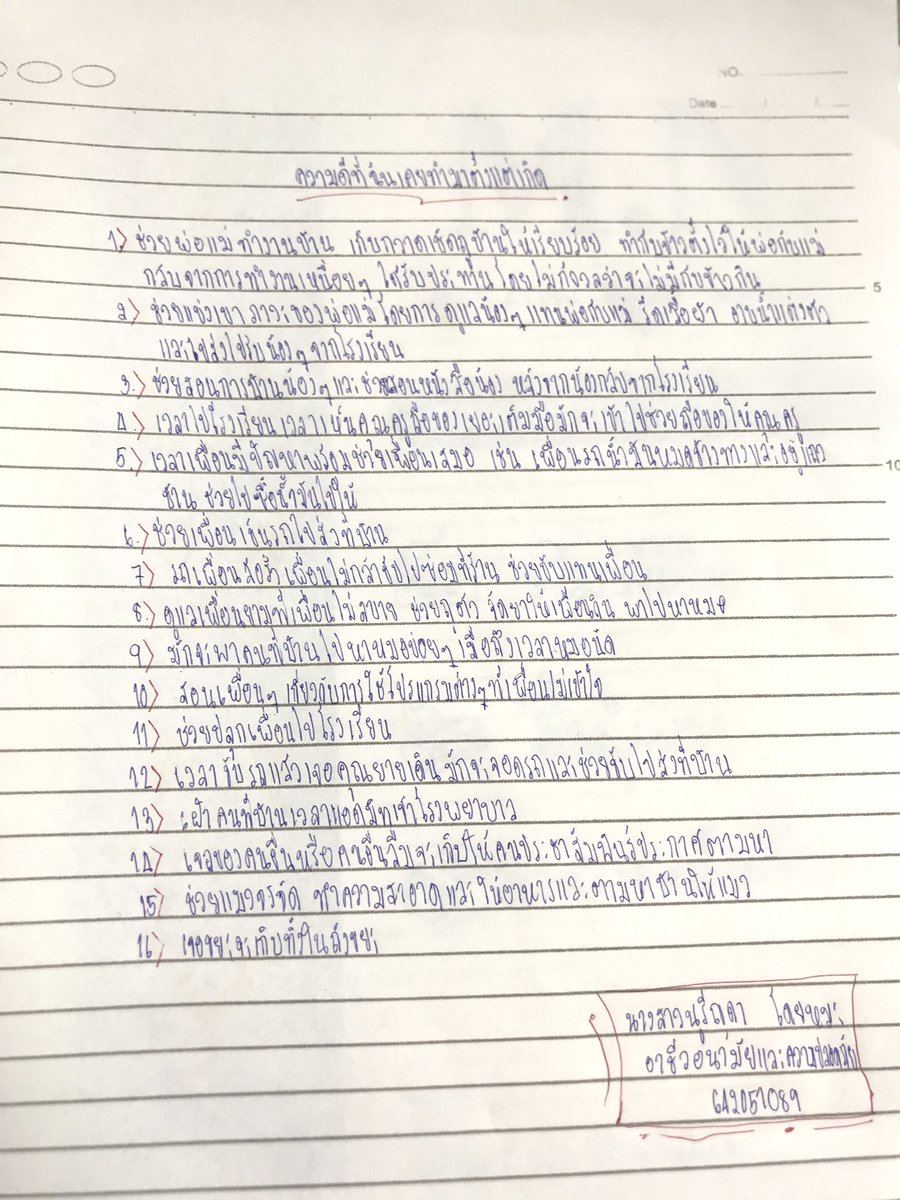 NO.
Date / /
ความดีที่ฉันเคยทำมาตั้งแต่เกิด
1> ช่วยพ่อแม่ทำงานบ้าน เก็บกวาดเช็ดถูบ้านให้เรียบร้อย ทำกับข้าวตั้งไว้ให้พ่อกับแม่
กลับจากการทำงานเหนื่อยๆ ได้รับประทานโดยไม่กังวลว่าจะไม่มีกับข้าวกิน
5
2> ช่วยแบ่งเบาภาระของพ่อแม่โดยการดูแลน้องๆแทนพ่อกับแม่ รีดเสื้อผ้า อาบน้ำแต่งตัว
และไปส่งไปรับน้องๆจากโรงเรียน
3.> ช่วยสอนการบ้านน้องๆและช่วยสอนหนังสือน้อง หลังจากน้องกลับจากโรงเรียน
4.> เวลาไปโรงเรียนเวลาเห็นคุณครูถือของเยอะเต็มมือมักจะเข้าไปช่วยถือของให้คุณครู
5.> เวลาเพื่อนมีปัญหาพร้อมช่วยเพื่อนเสมอ เช่น เพื่อนรถน้ำมันหมดข้างทางและอยู่แถว
10
บ้าน ช่วยไปซื้อน้ำมันไปให้
6.> ช่วยเพื่อนเข็นรถไปส่งที่บ้าน
7> รถเพื่อนล้อรั่ว เพื่อนไม่กล้าขับไปซ่อมที่ร้าน ช่วยขับแทนเพื่อน
8> ดูแลเพื่อนยามที่เพื่อนไม่สบาย ช่วยเช็ดตัว จัดยาให้เพื่อนกิน พาไปหาหมอ
9> มักจะพาคนที่บ้านไปหาหมอบ่อยๆ เมื่อถึงเวลาหมอนัด
10> สอนเพื่อนๆ เกี่ยวกับการใช้โปรแกรมต่างๆที่เพื่อนไม่เข้าใจ
11> ช่วยปลุกเพื่อนไปโรงเรียน
12> เวลาขับรถแล้วเจอคุณยายเดิน มักจะจอดรถและช่วยขับไปส่งที่บ้าน
13> เฝ้าคนที่บ้านเวลาแอดมิทเข้าโรงพยาบาล
14> เจอของคนอื่นหรือคนอื่นลืมจะเก็บให้คนประชาสัมพันธ์ประกาศตามหา
15> ช่วยแมวจรจัด ทำความสะอาดและให้อาหารและตามหาบ้านให้แมว
16> เจอขยะจะเก็บทิ้งในถังขยะ
นางสาวนูรีฌา โดยหมะ
อาชีวอนามัยและความปลอดภัย
642051089